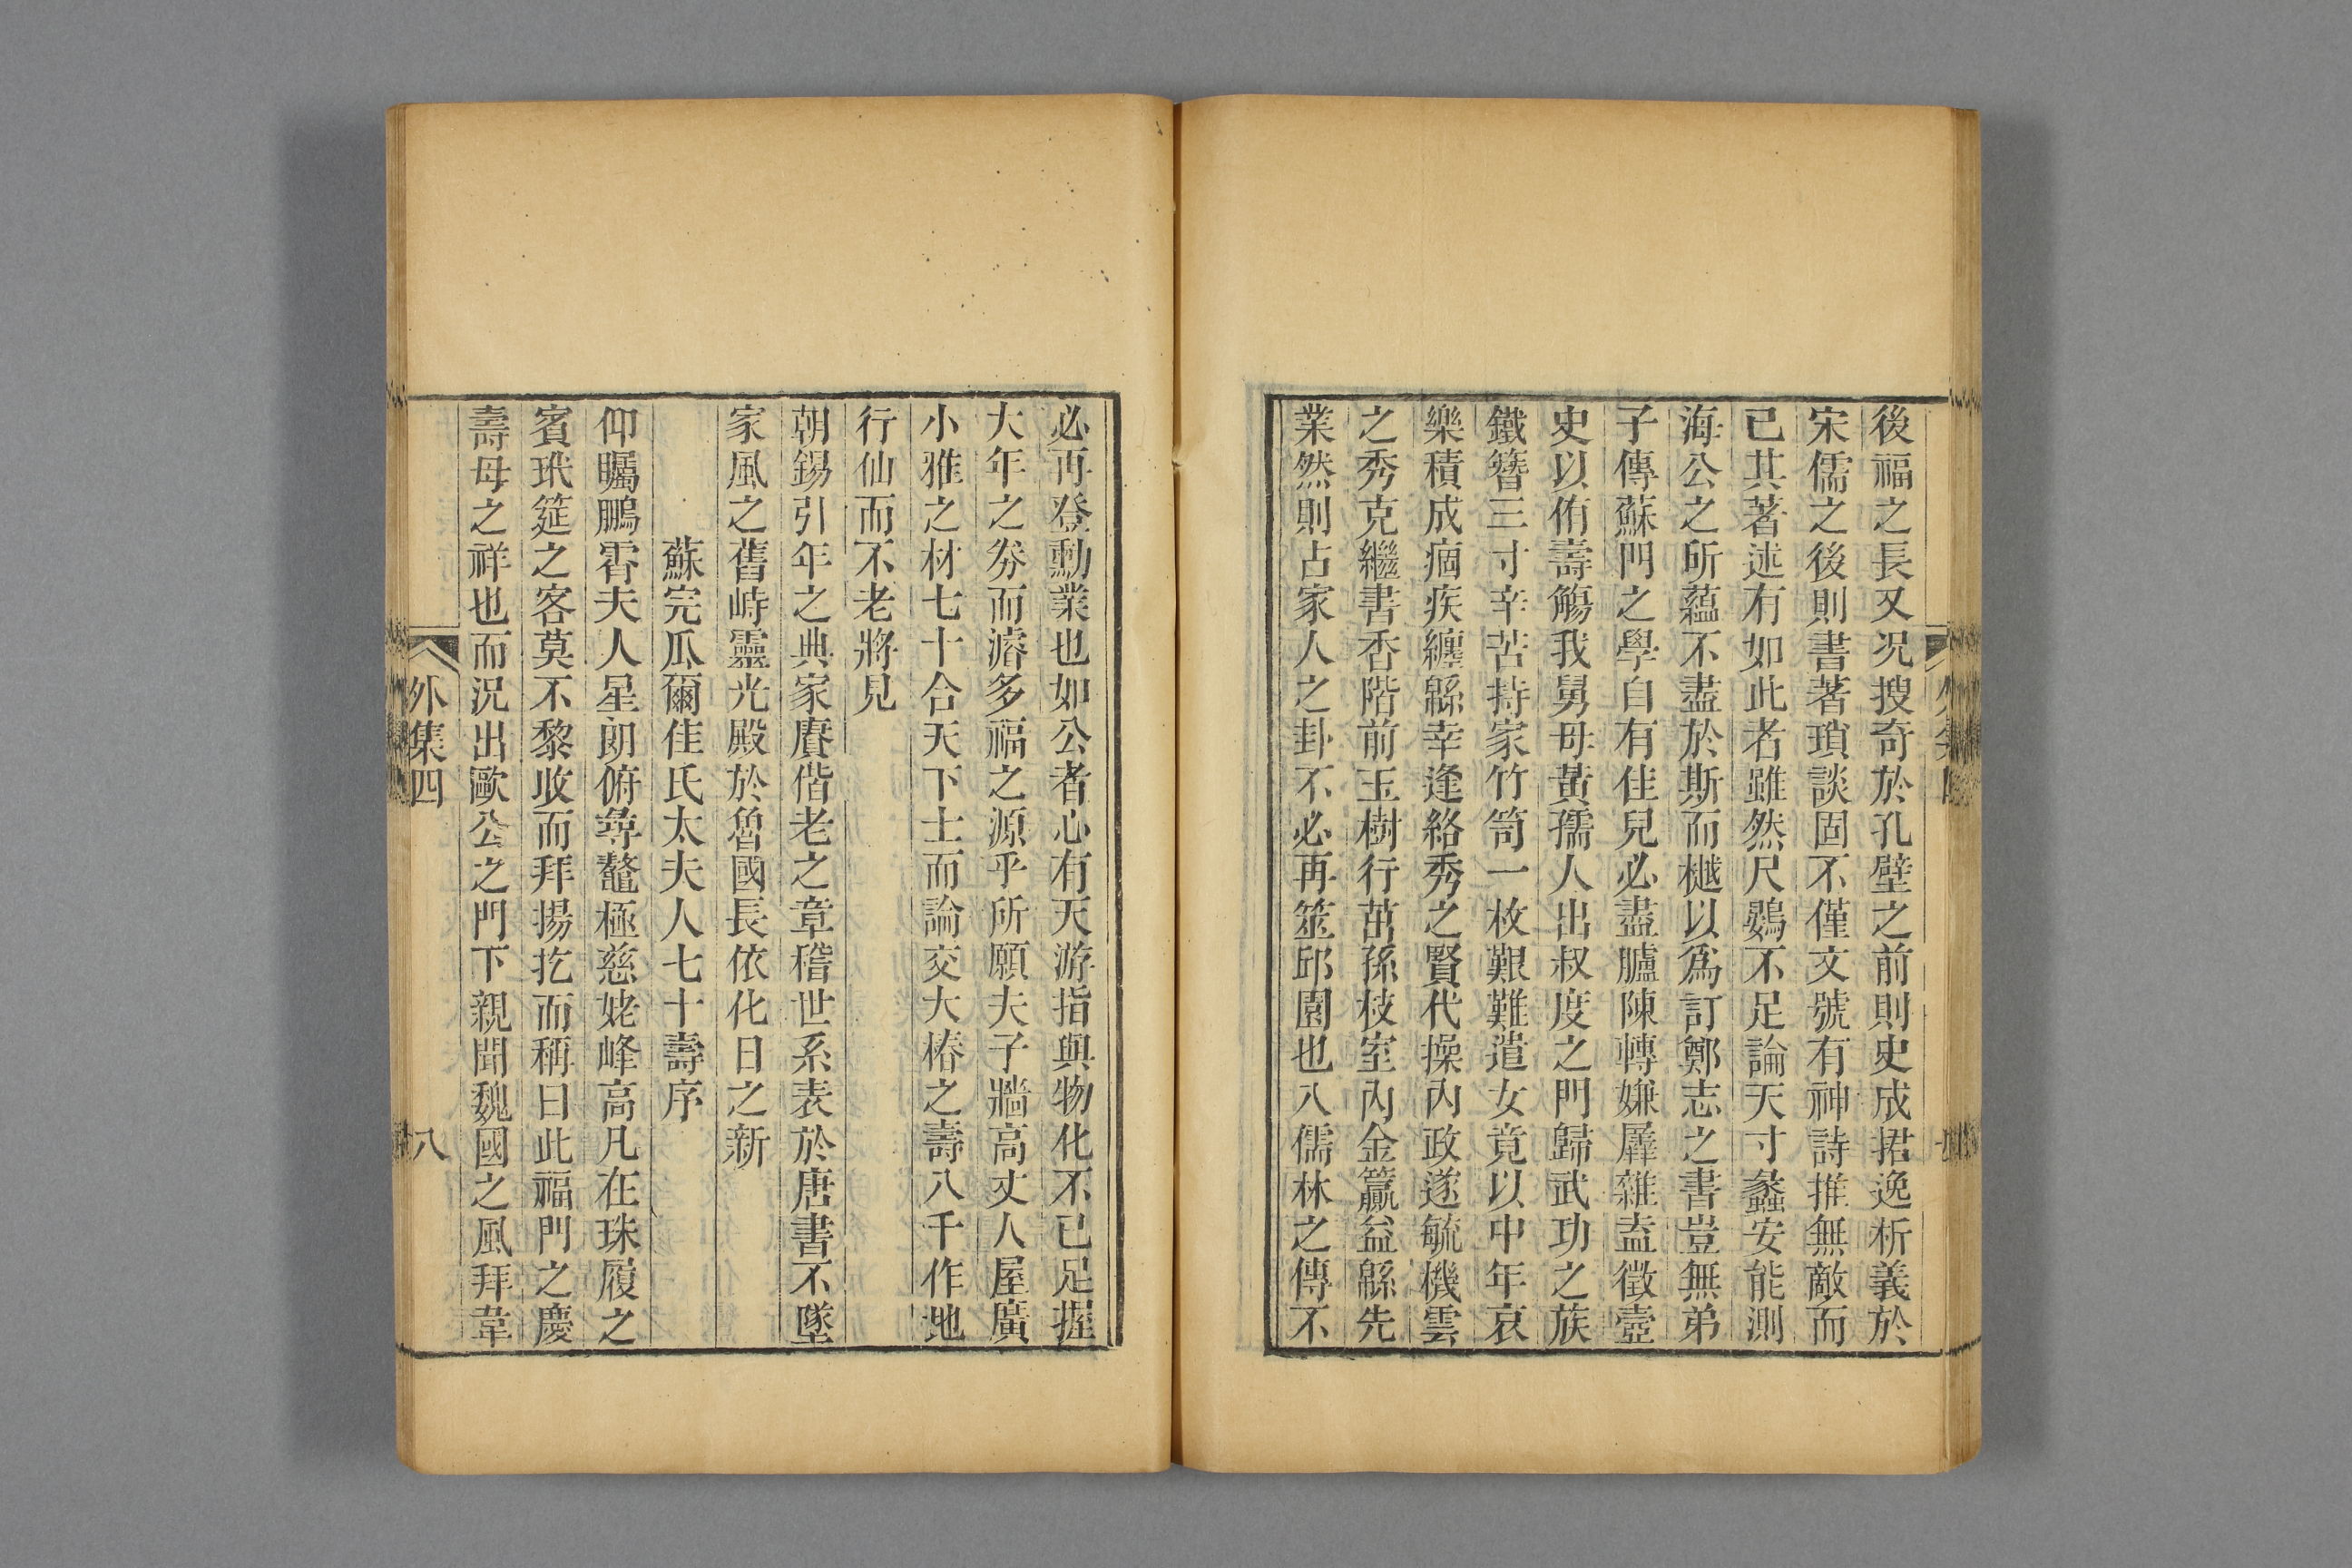 後福之長又况搜奇於孔壁之前則史成捃逸析義於
宋儒之後則書著瑣談固不僅文號有神詩推無敵而
已其著述有如此者雖然尺鷃不足論天寸蠡安能測
海公之所蘊不盡於斯而樾以爲訂鄭志之書豈無弟
子傳蘇門之學自有佳兒必盡臚陳轉嫌羼雜盍徵壼
史以侑壽觴我舅母黃孺人出叔度之門歸武功之族
鐵簪三寸辛苦持家竹笥一枚艱難遣女竟以中年哀
樂積成痼疾纏緜幸逢絡秀之賢代操內政遂毓機雲
之秀克繼書香階前玉樹行茁孫枝室內金籯益緜先
業然則占家人之卦不必再筮邱園也入儒林之傳不
必再登勳業也如公者心有天游指與物化不已足握
大年之券而濬多福之源乎所願夫子牆高丈人屋廣
小雅之材七十合天下士而論交大椿之壽八千作地
行仙而不老將見
朝錫引年之典家賡偕老之章稽世系表於唐書不墜
家風之舊峙靈光殿於魯國長依化日之新
蘇完瓜爾佳氏太夫人七十壽序
仰矚鵬霄夫人星朗俯尋鼇極慈姥峰高凡在珠履之
賓玳筵之客莫不黎收而拜揚扢而稱曰此福門之慶
壽母之祥也而況出歐公之門下親聞魏國之風拜韋
外集四
八